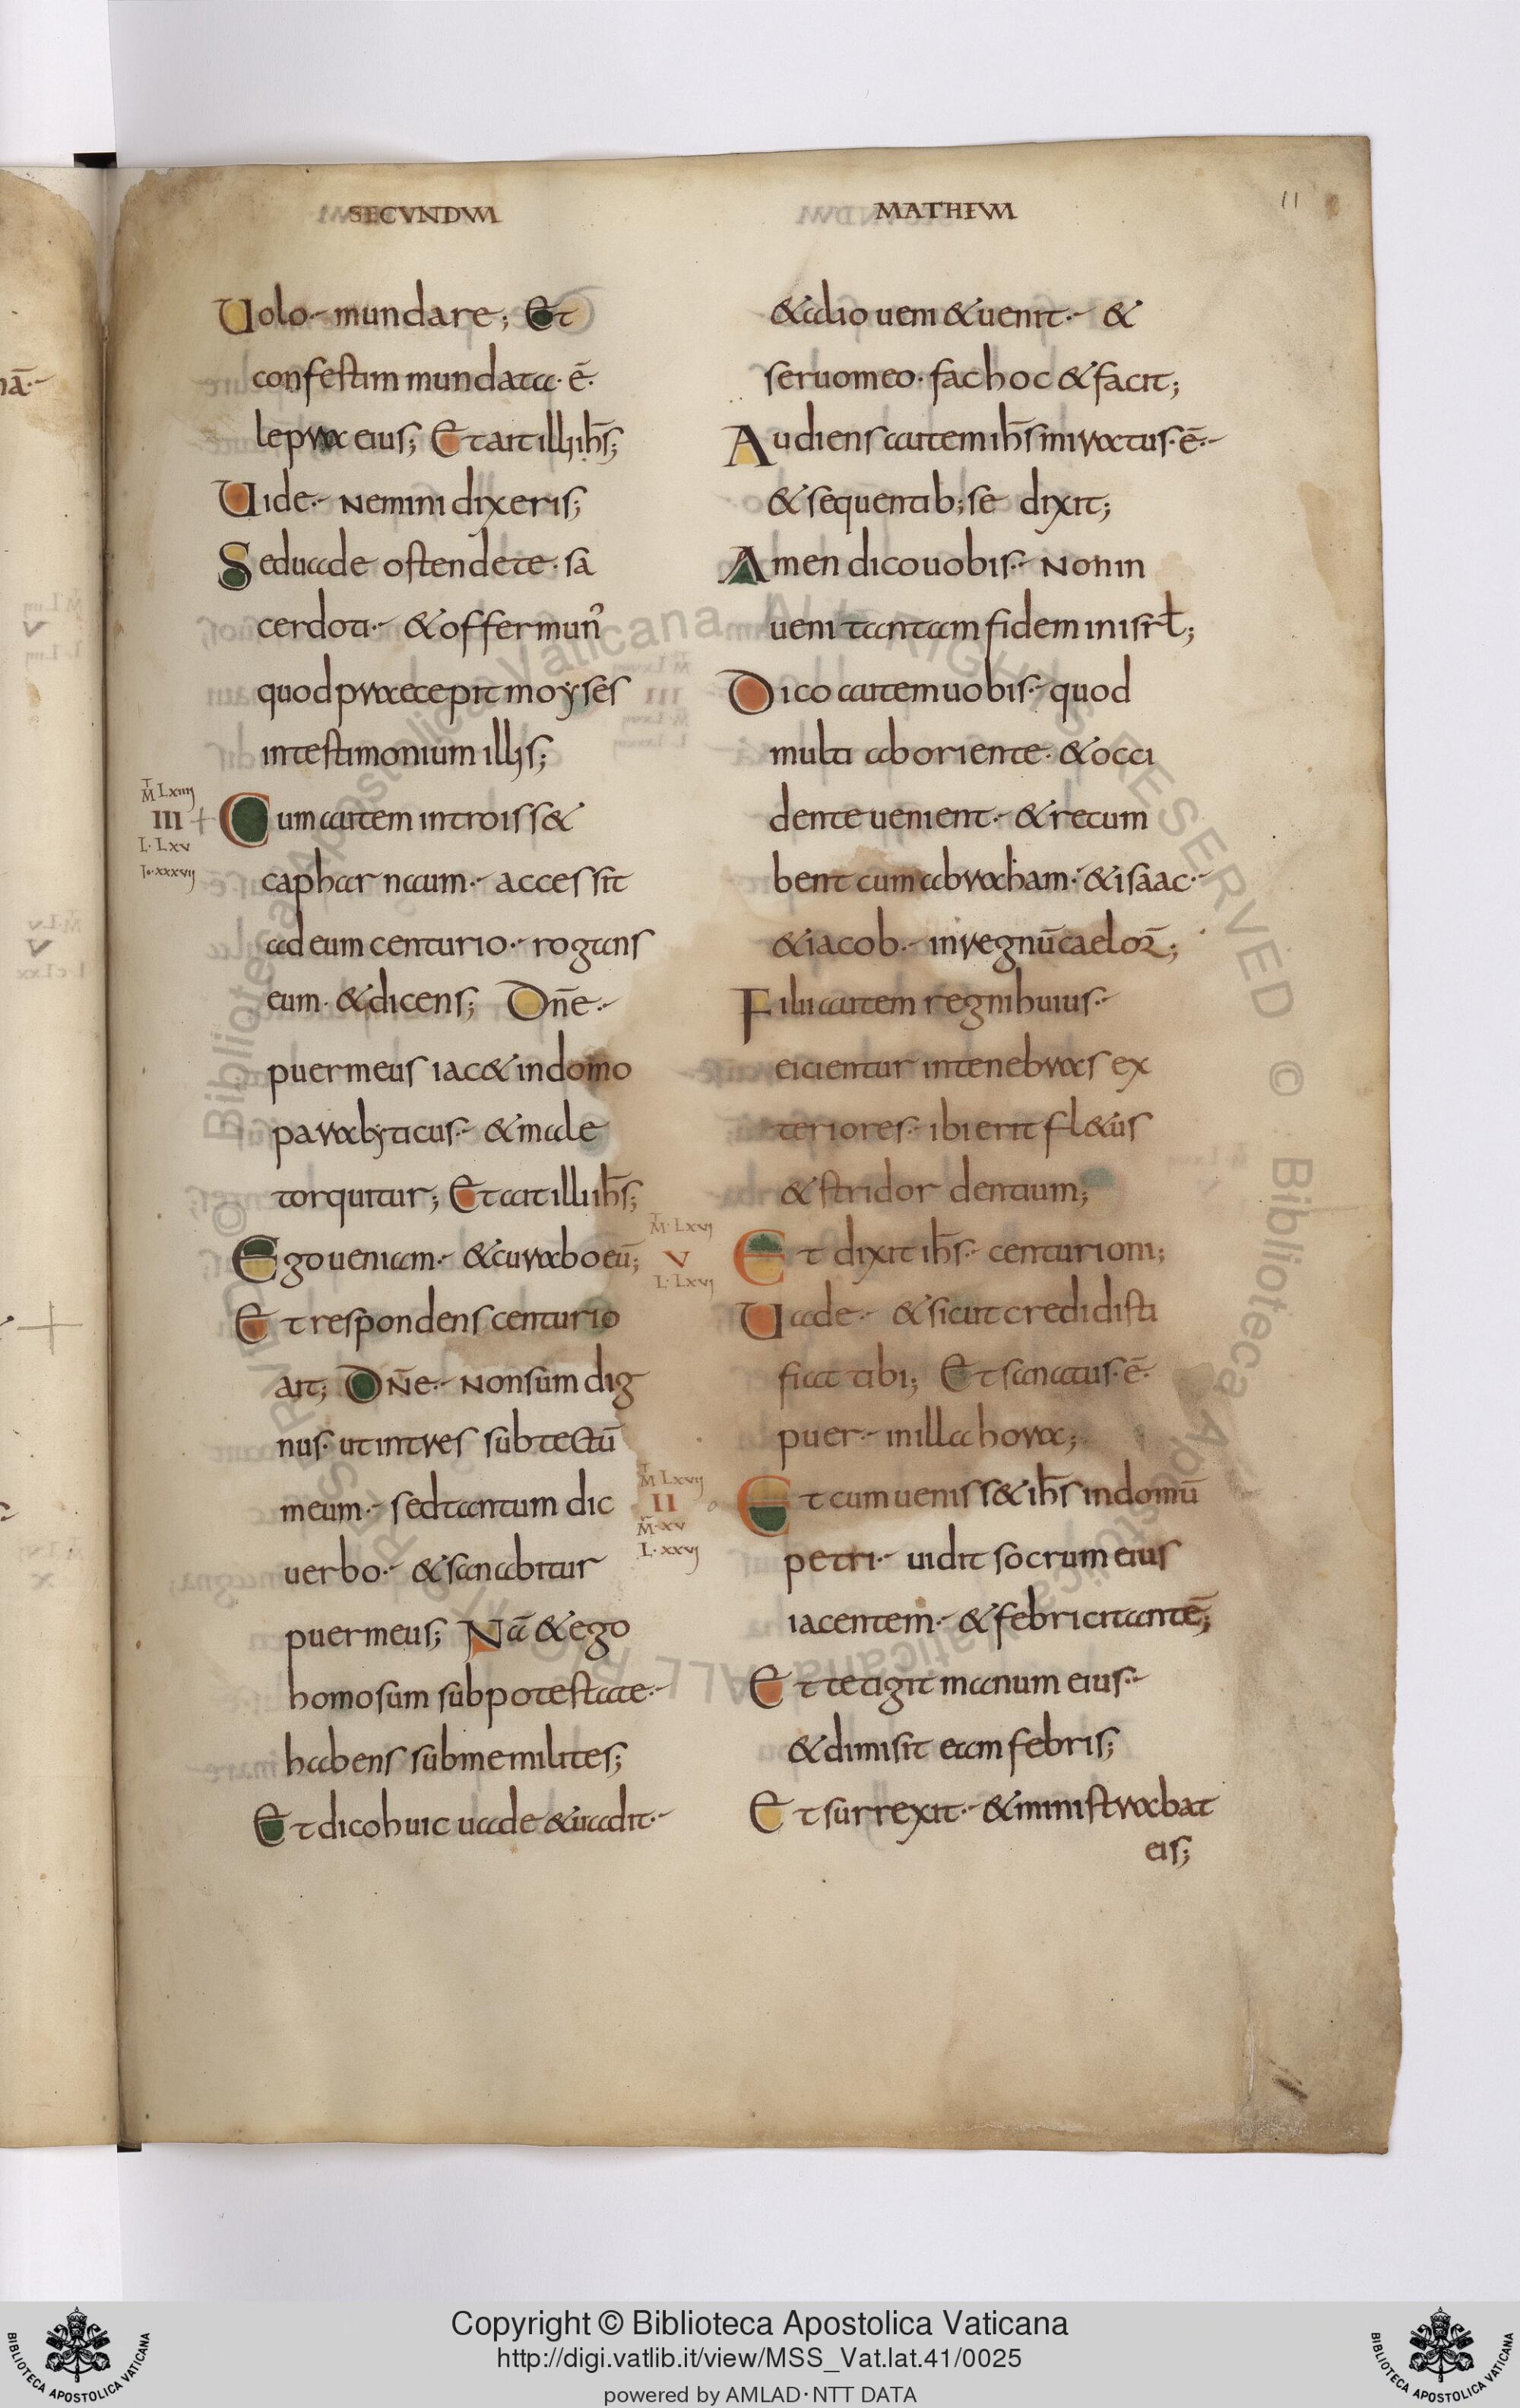 SECVNDVM
Uolo· mundare; Et
confestim mundata· ē·
lepra eius; Et ait illi ihs̄;
Uide· Nemini dixeris;
Sed uade ostende te· sa
cerdoti· & offer mun᾽
quod praecepit moyses
in testimonium illis;
T
M LXIIIJ
III
L· LXV
Io· XXXVIJ
Cum autem introiss&
capharnaum· accessit
ad eum centurio· rogans
eum· & dicens; Dn̄e·
puer meus iac& in domo
paralyticus· & male
torquitur; Et ait illi ihs̄;
Ego ueniam· & curabo eū;
Et respondens centurio
ait; Dn̄e· Non sum dig
nus· ut intres sub tectū
meum· sed tantum dic
uerbo· & sanabitur
puer meus; Nā & ego
homo sum sub potestate·
habens sub me milites;
Et dico huic uade & uadit·
MATHEVM
11
& alio ueni & uenit· &
seruo meo· fac hoc & facit;
Audiens autem ihs̄ miratus· ē·
& sequentib; se dixit;
Amen dico uobis· Non in
ueni tantam fidem in isrł;
Dico autem uobis· quod
multi ab oriente· & occi
dente uenient· & recum
bent cum abraham· & isaac·
& iacob· in regnū caeloꝝ;
Filii autem regni huius·
eicientur in tenebras ex
teriores· ibi erit fl&us
& stridor dentium;
T
M· LXVJ
V
L· LXVJ
Et dixit ihs̄· centurioni;
Uade· & sicut credidisti
fiat tibi; Et sanatus· ē·
puer· in illa hora;
T
M LXVIJ
II
M̄· XV
L· XXVJ
Et cum ueniss& ihs̄ in domū
petri· uidit socrum eius
iacentem· & febricitantē;
Et tetigit manum eius·
& dimisit eam febris;
Et surrexit· & ministrabat
eis;
Copyright © Biblioteca Apostolica Vaticana
http://digi.vatlib.it/view/MSS_Vat.lat.41/0025
powered by AMLAD·NTT DATA